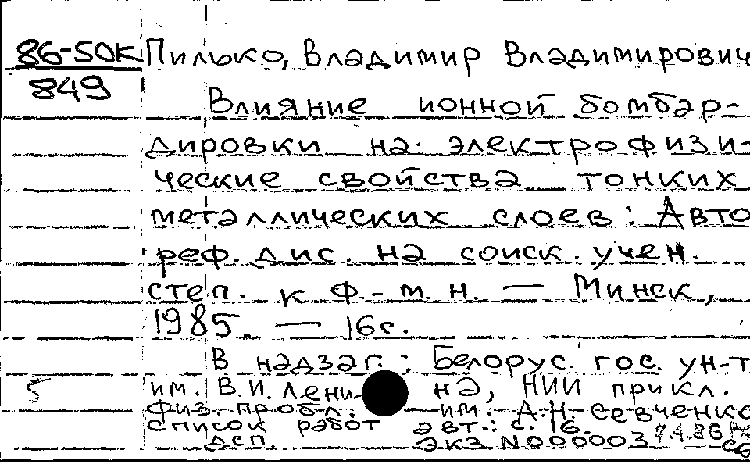 86-50К Пилько, Владимир Владимирович
849
Влияние ионной бомбар-
дировки на электрофизи-
ческие свойства тонких
металлических слоев: Авто
реф. дис. на соиск. учен.
степ. к ф.-м. н. — Минск,
1985. — 16 с.
В надзаг.: Белорус. гос. ун-т
5 им. В.И. Лени- на, НИИ прикл.
физ. пробл. им. А.Н. Севченко
список работ авт.: с. 16.
дсп. экз N000003